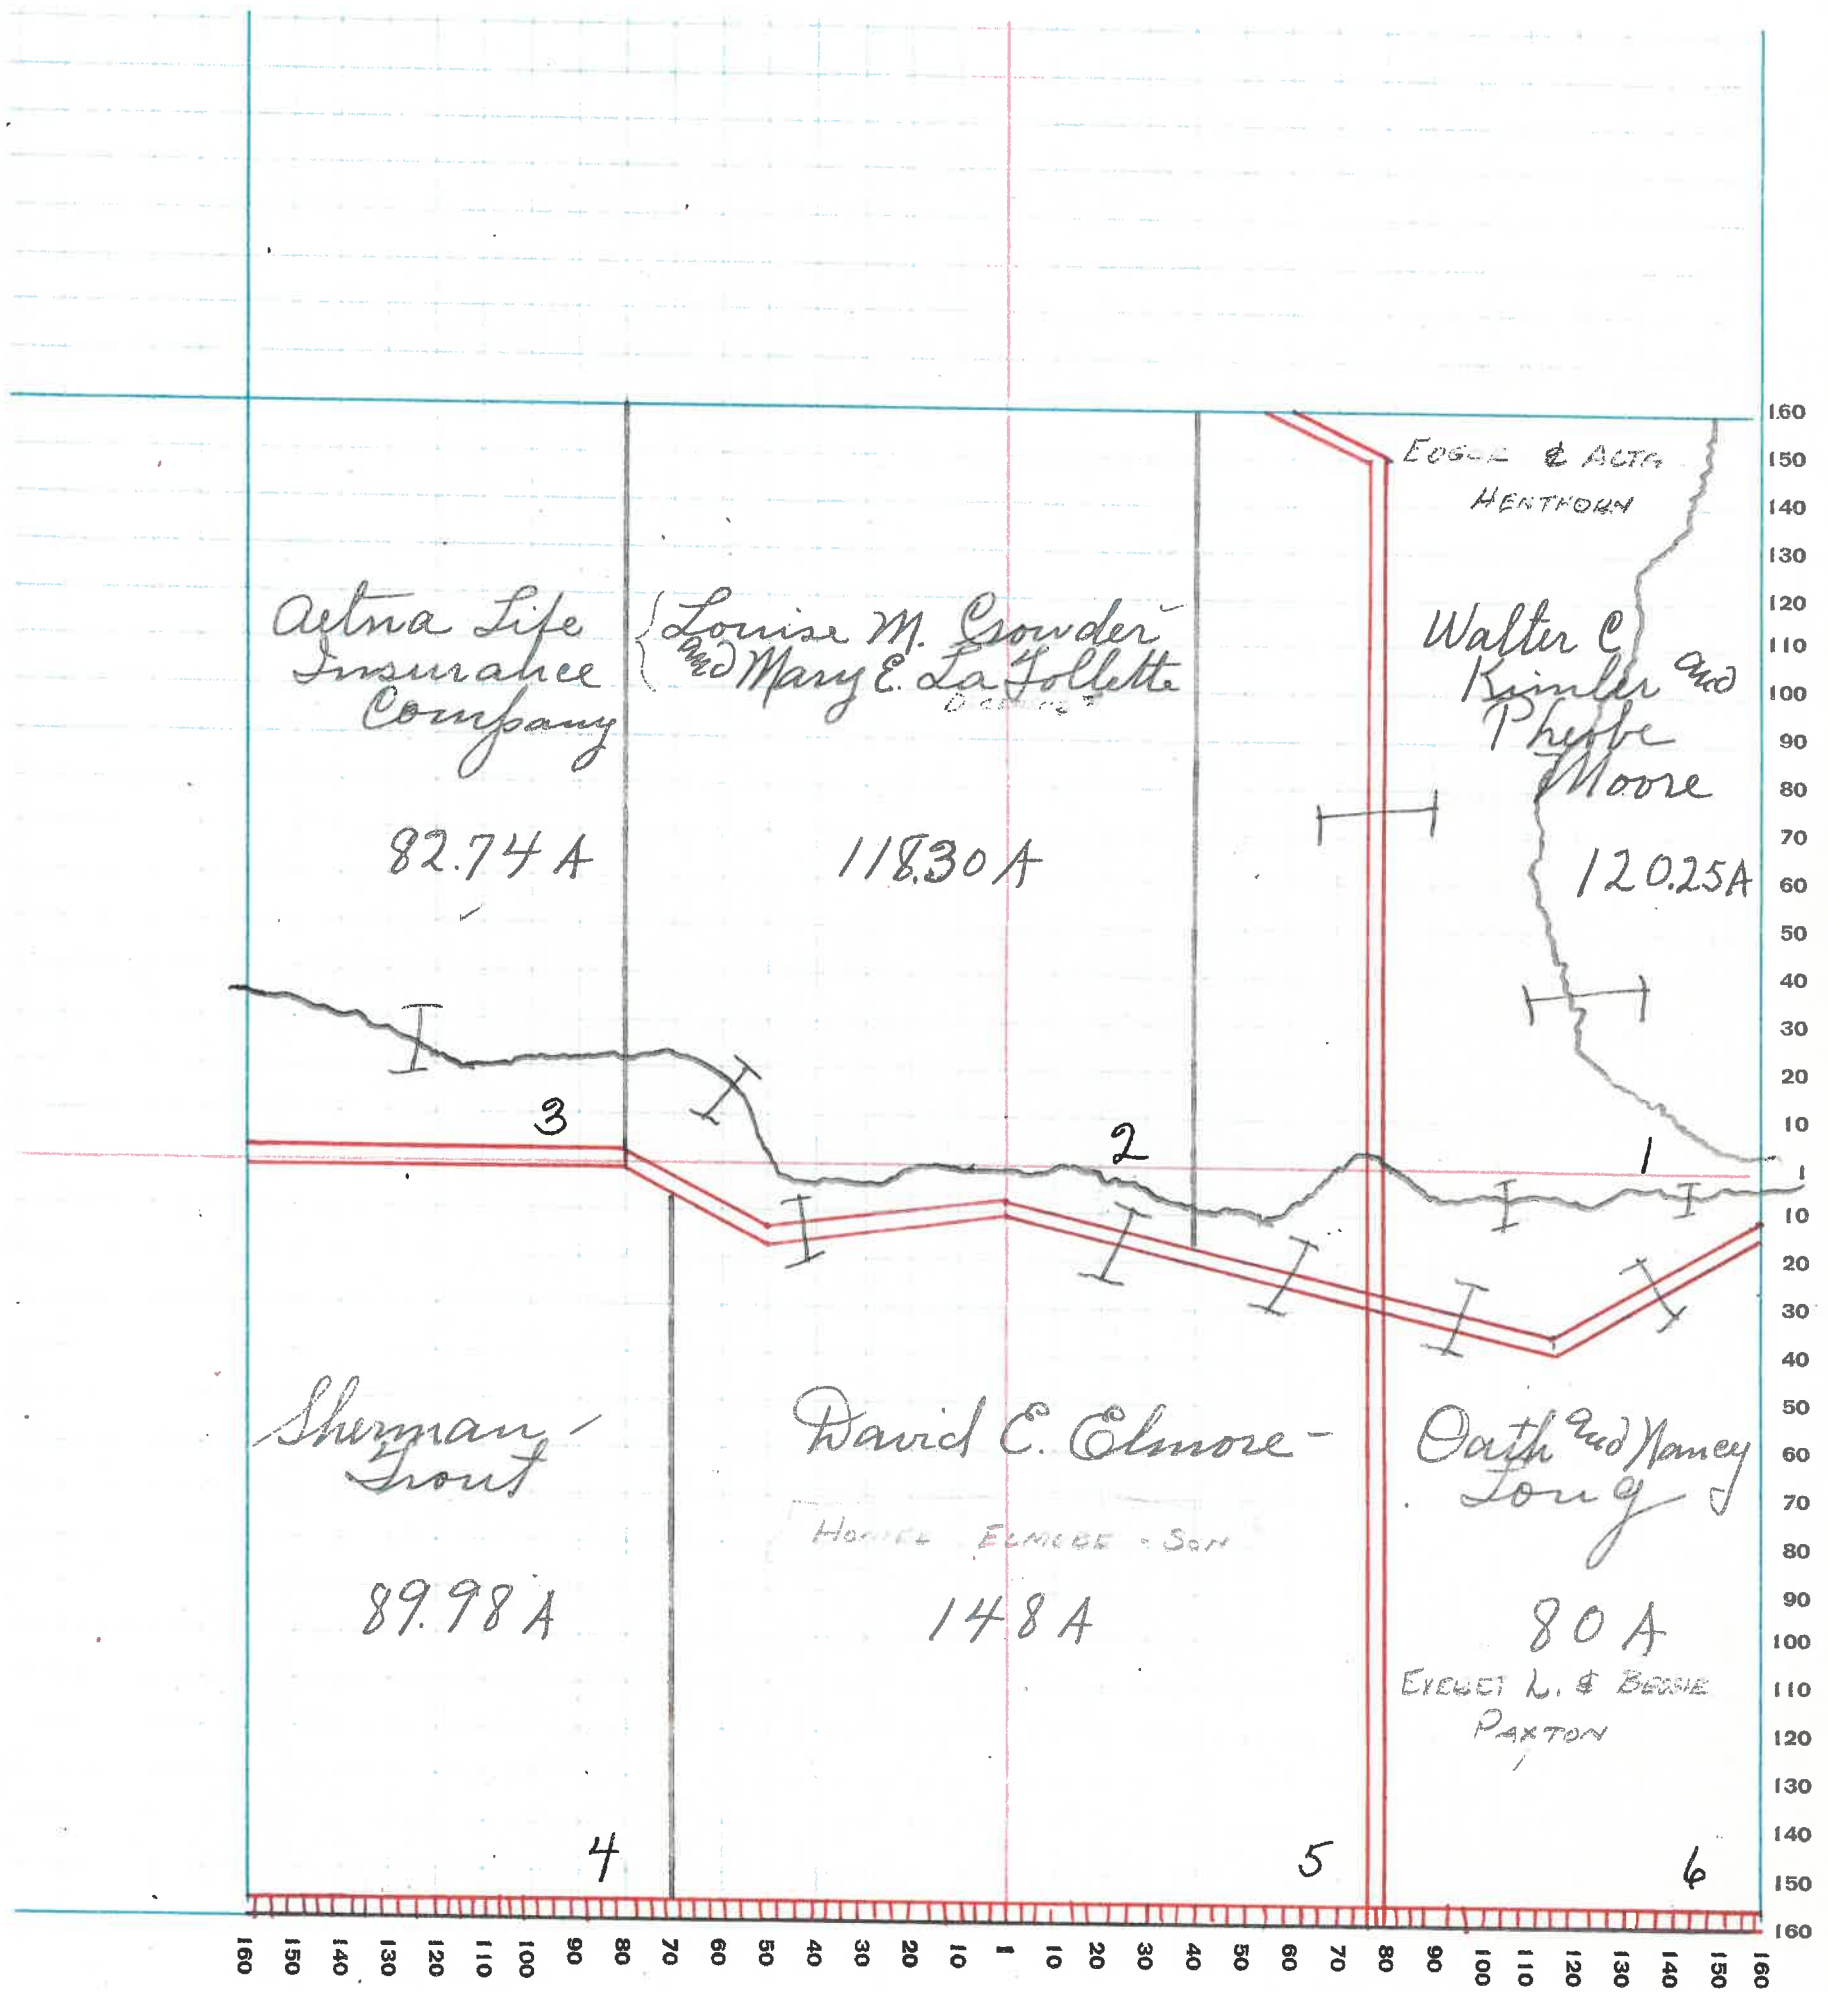 Aetna Life
Insurance
Company
82.74 A
3
Louise M. Crowder
and Mary E. La Follette
118.30 A
2
& ALTA
HENTHORN
Walter C
Kimler and
Phebe
Moore
120.25A
1
Sherman
Trout
89.98 A
4
David E. Elmore
ELMORE - SON
148 A
5
Oath and Nancy
Long
80 A
L. & BESSIE
PAXTON
6
160
150
140
130
120
110
100
90
80
70
60
50
40
30
20
10
1
10
20
30
40
50
60
70
80
90
100
110
120
130
140
150
160
160 150 140 130 120 110 100 90 80 70 60 50 40 30 20 10 1 10 20 30 40 50 60 70 80 90 100 110 120 130 140 150 160